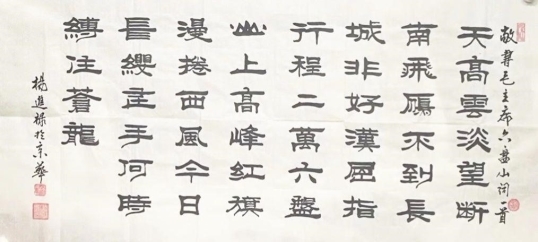 敬 毛主席六盤山词一首
天高雲淡望断
南飛鴈不到長
城非好漢屈指
行程二萬六盤
山上高峰紅旗
漫捲西風今日
長纓在手何時
縛住蒼龍
楊進祿於京華